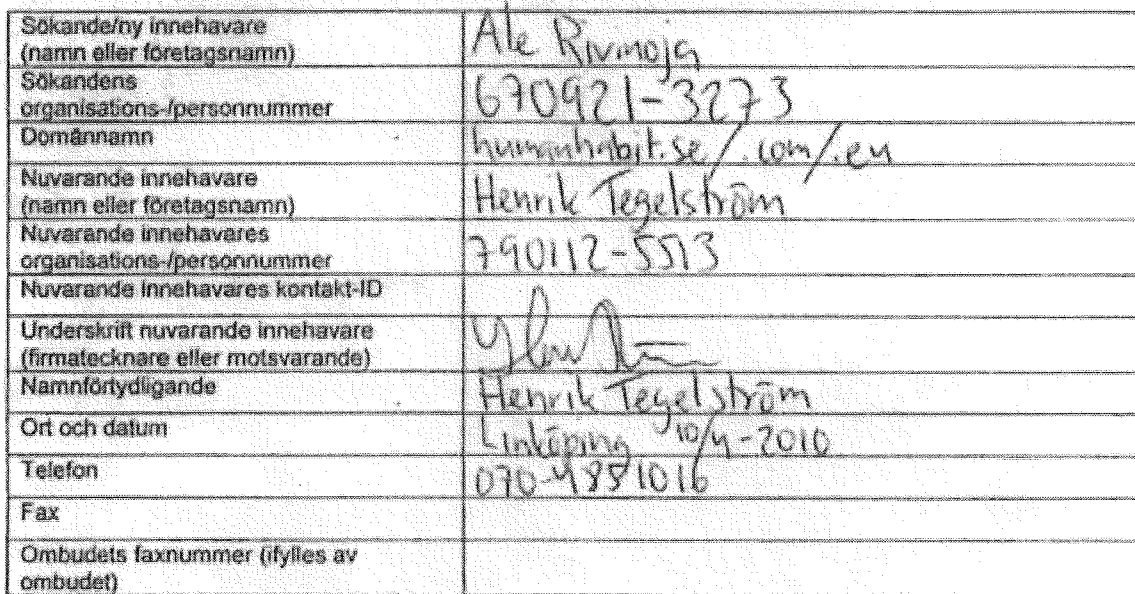 Sökande/ny innehavare
(namn eller företagsnamn)
Ale Rivinoja
Sökandens
organisations-/personnummer
670921-3273
Domännamn
humanhabit.se/.com/.eu
Nuvarande innehavare
(namn eller företagsnamn)
Henrik Tegelström
Nuvarande innehavares
organisations-/personnummer
790112-5513
Nuvarande innehavares kontakt-ID
Underskrift nuvarande innehavare
(firmatecknare eller motsvarande)
Namnförtydligande
Henrik Tegelström
Ort och datum
Linköping 10/4-2010
Telefon
070-4851016
Fax
Ombudets faxnummer (ifylles av
ombudet)